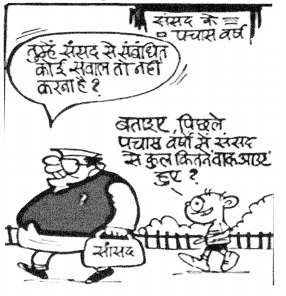 संसद के
पचास वर्ष
तुम्हें संसद से संबंधित
कोई सवाल तो नहीं
करना है?
बताइए, पिछले
पचास वर्षों में संसद
से कुल कितने वाक आउट
हुए?
सांसद